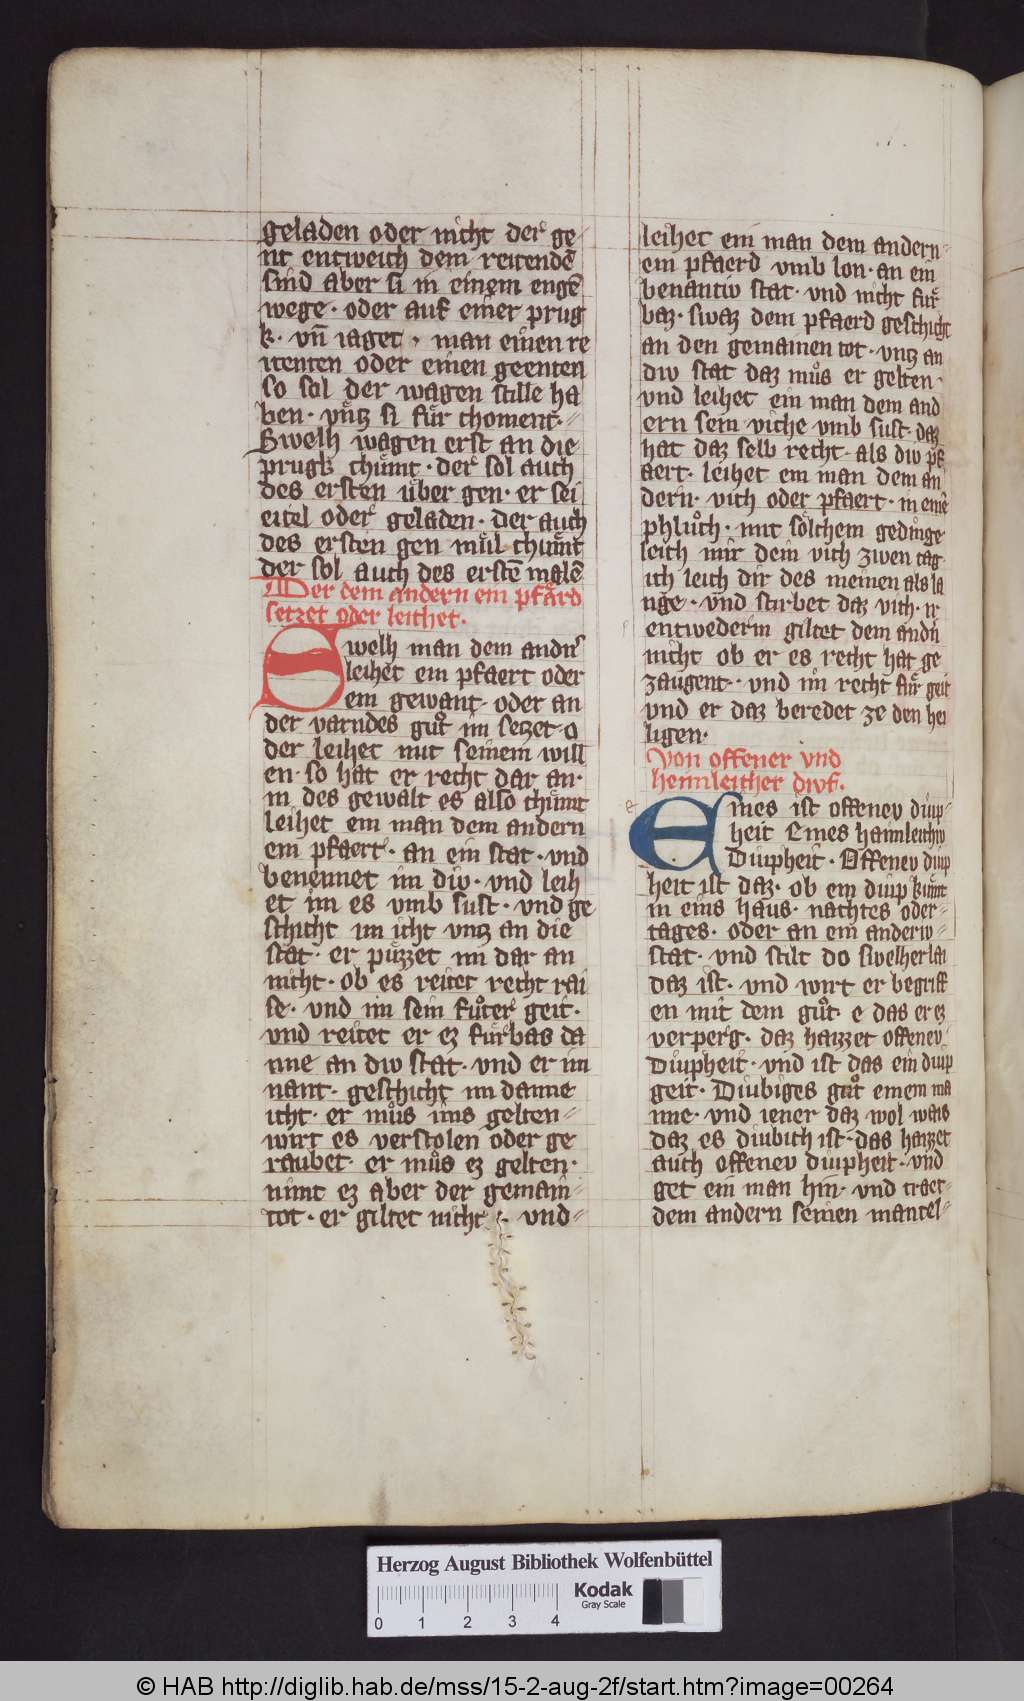 geladen oder nicht der ge
nt entweich dem reitendē
sind aber si in einem engē
wege · oder auf einer prug
k · vn̄ iaget · man einen re
itenten oder einen geenten
so sol der wagen stille ha
ben · vntz si fuͤr choment ·
Swelh wagen erst an die
prugk chuͤmt · der sol auch
des ersten uͤber gen · er sei
eitel oder geladen · der auch
des ersten gen muͤl chuͤmt
der sol auch des erstē malē
Der dem andern ein pfaͤrd
setzet oder leichet ·
Swelh man dem andn̄
leihet ein pfaert oder
ein gewant · oder an
der varndes guͦt im setzet o
der leihet mit seinem will
en · so hat er recht dar an ·
in des gewalt es also chuͤmt
leihet ein man dem andern
ein pfaert · an ein stat · vnd
benennet im div · vnd leih
et im es vmb sust · vnd ge
schicht im icht vntz an die
stat · er puͤzzet im dar an
nicht · ob es reitet recht rai
se · vnd im sein fuͦter geit ·
vnd reitet er ez fuͤrbas da
nne an div stat · vnd er im
nant · geschicht im danne
icht · er muͦs ims gelten
wirt es verstolen oder ge
raubet · er muͦs ez gelten ·
nimt ez aber der gemain
tot · er giltet nicht · vnd
leihet ein man dem andern
ein pfaerd vmb lon · an ein
benantiv stat · vnd nicht fuͤr
baz · swaz dem pfaerd geschicht
an den gemainen tot · vntz an
div stat daz muͦs er gelten ·
vnd leihet ein man dem and
ern sein viche vmb sust · daz
hat daz selb recht · als div pf
aert · leihet ein man dem an
dern · vich oder pfaert · in einē
phluͦch · mit soͤlchem gedinge
leich mir dein vich zwen tag
ich leich dir des meinen als la
nge · vnd stirbet daz vich · ir
entwederm giltet dem andn̄
nicht ob er es recht hat ge
zaugent · vnd im recht fuͤr geit
vnd er daz beredet ze den hei
ligen ·
Von offener vnd
heimleicher divf ·
Eines ist offenev diup
heit Eines haimleichiv
Diupheit · Offenev diup
heit ist daz · ob ein diup kuͤmt
in eins haus · nachtes oder
tages · oder an ein anderiv
stat · vnd stilt do swelherlai
daz ist · vnd wirt er begriff
en mit dem guͦt · e das er ez
verperg · daz haizzet offenev
Diupheit · vnd ist das ein diup
geit · Diubiges guͦt einem ma
nne · vnd iener daz wol wais
daz es diubich ist · das haizzet
auch offenev diupheit · vnd
get ein man hin · vnd traet
dem andern seinen mantel
Herzog August Bibliothek Wolfenbüttel
Kodak
Gray Scale
0 1 2 3 4
© HAB http://diglib.hab.de/mss/15-2-aug-2f/start.htm?image=00264